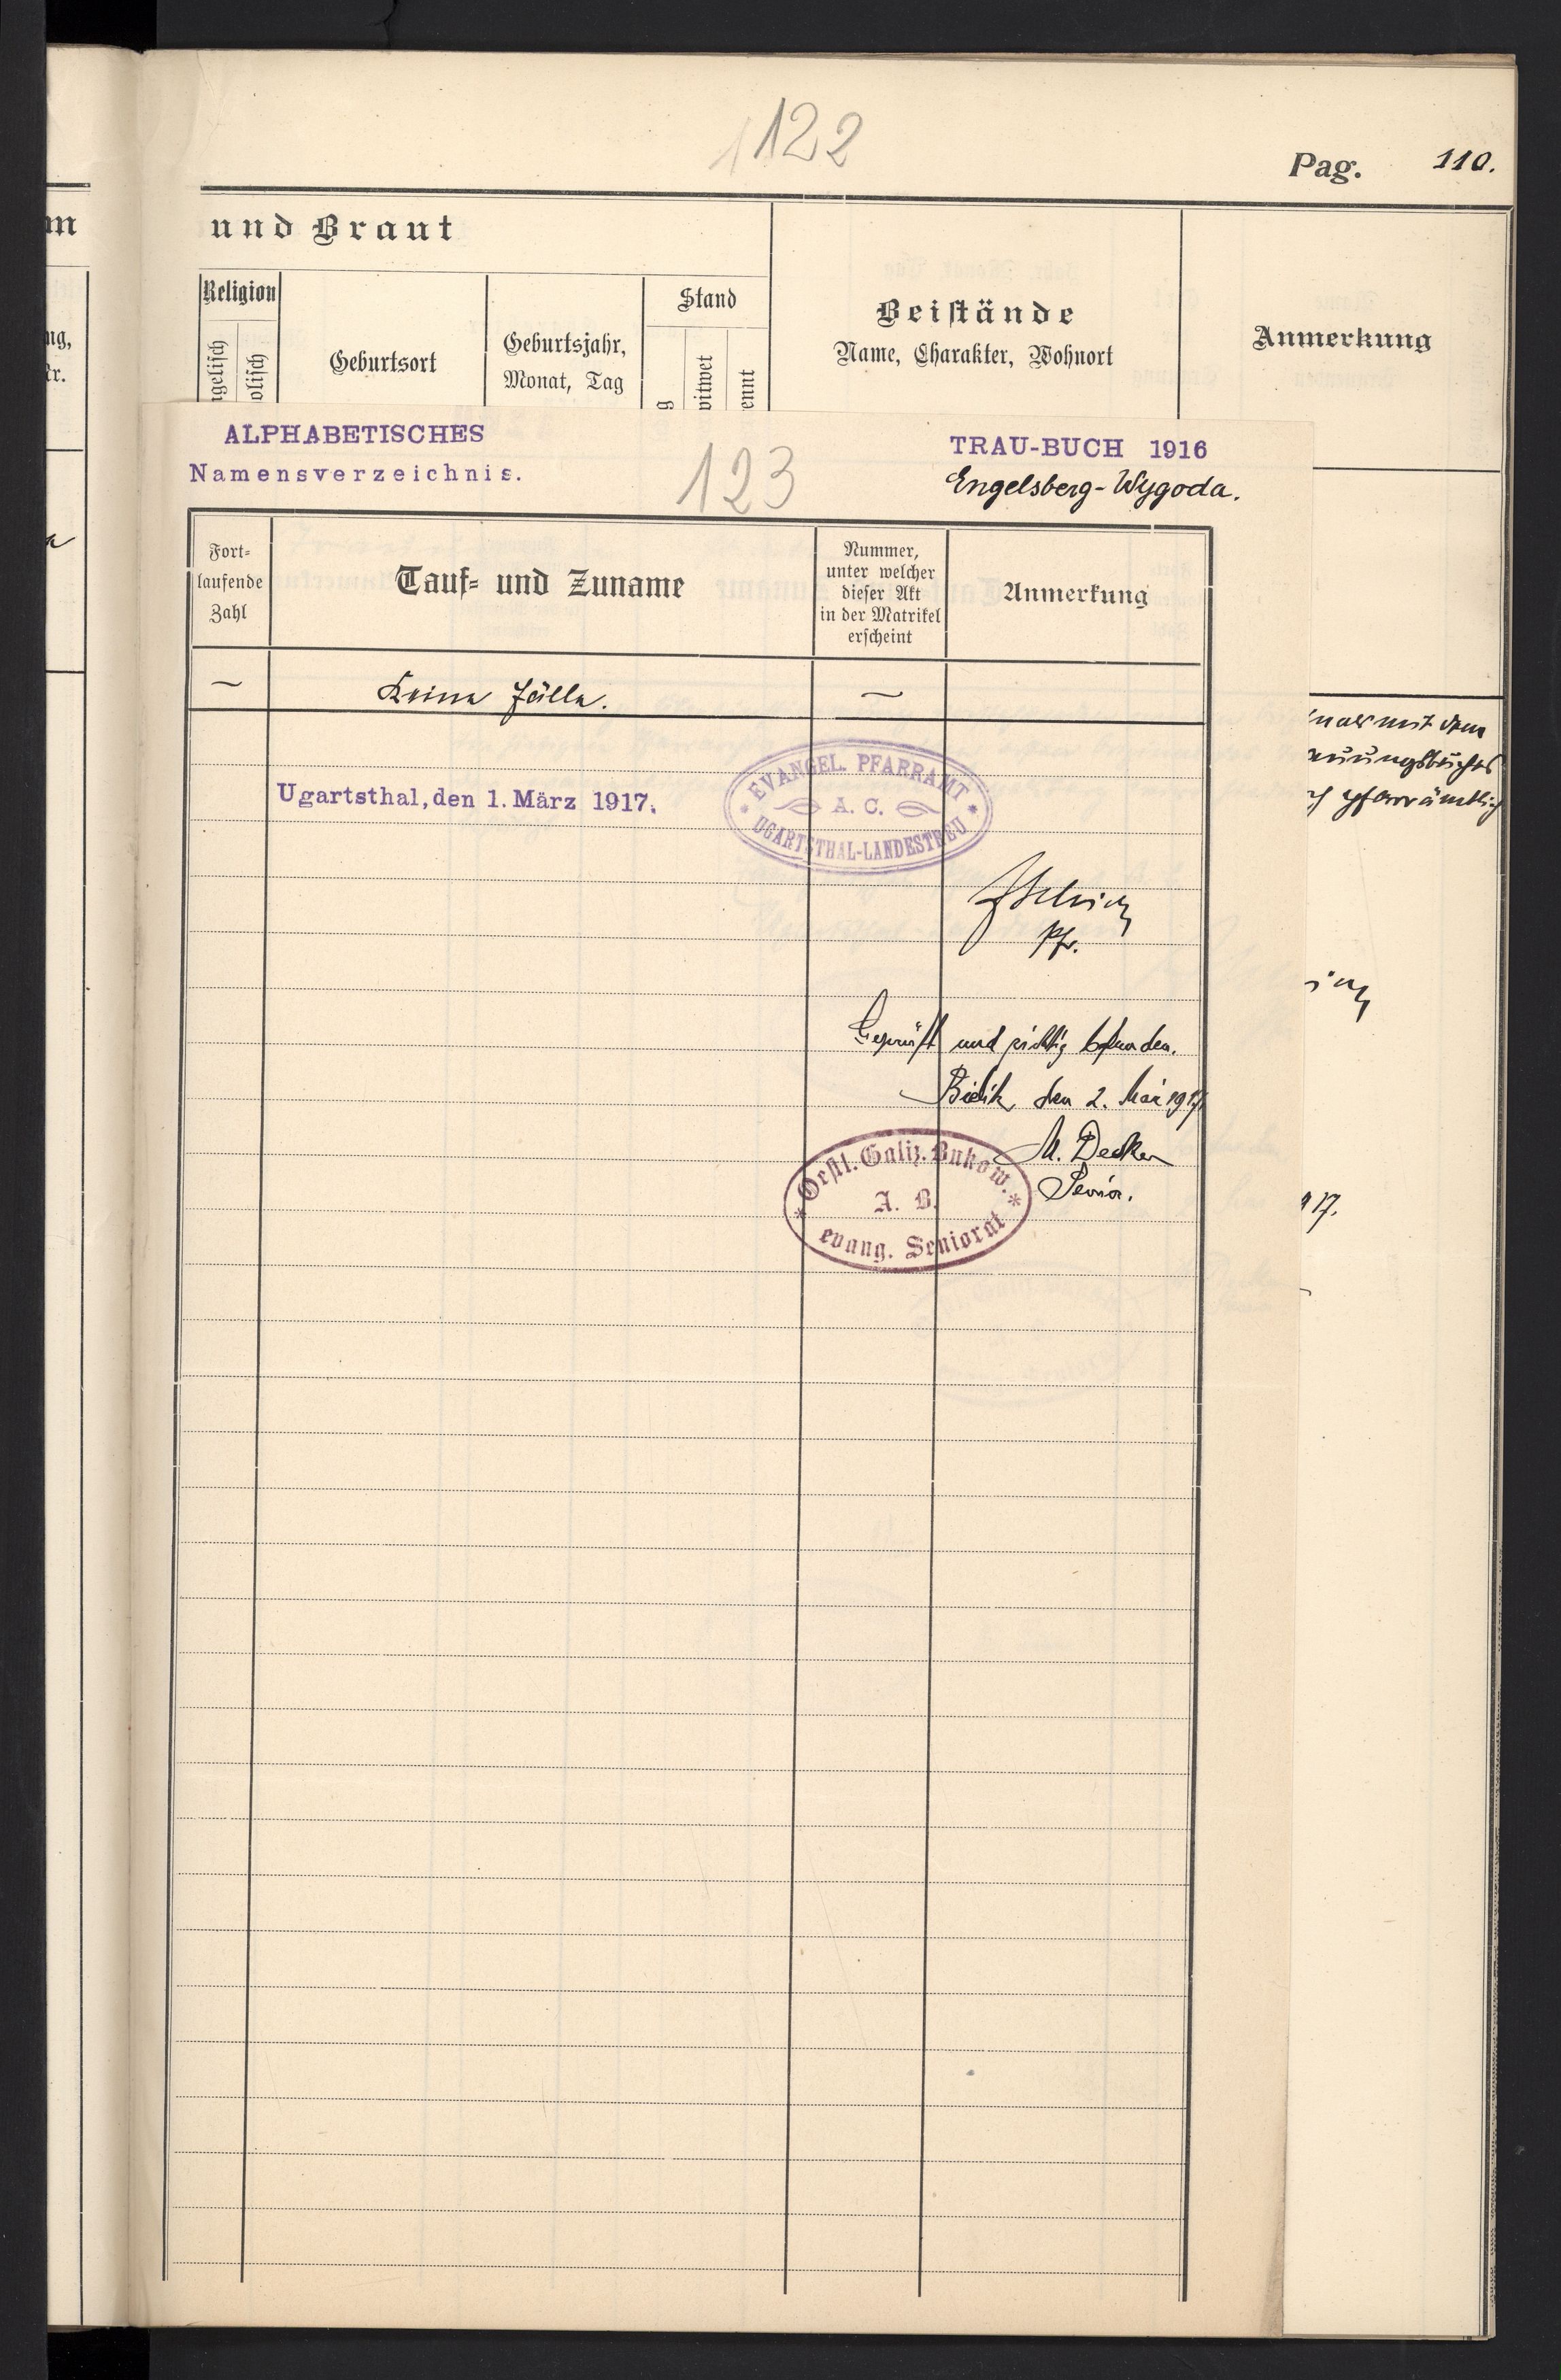 122
Pag. 110.
und Braut
Religion
Stand
Geburtsort
Geburtsjahr,
Monat, Tag
Beistände
Name, Charakter, Wohnort
Anmerkung
ng,
gelisch
olisch
g
vitwet
ennt
ALPHABETISCHES
Namensverzeichnis.
123
TRAU-BUCH 1916
Engelsberg-Wygoda.
Fort-
laufende
Zahl
Tauf- und Zuname
Nummer,
unter welcher
dieser Akt
in der Matrikel
erscheint
Anmerkung
— Keine Fälle. —
mit dem
pfarrämtlich
Ugartsthal, den 1. März 1917.
EVANGEL. PFARRAMT
A. C.
UGARTSTHAL-LANDESTREU
Pfr.
Geprüft und richtig befunden.
Bielitz, den 2. Mai 1917.
M. Decker
Senior.
Oestl. Galiz. Bukow.
A. B.
evang. Seniorat
17.